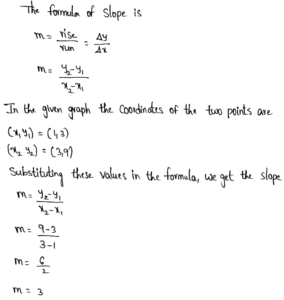 The formula of slope is
m = rise/run = Δy/Δx
m = y₂-y₁/x₂-x₁
In the given graph the coordinates of the two points are
(x₁ y₁) = (1,3)
(x₂ y₂) = (3,9)
Substituting these values in the formula, we get the slope
m = y₂-y₁/x₂-x₁
m = 9-3/3-1
m = 6/2
m = 3